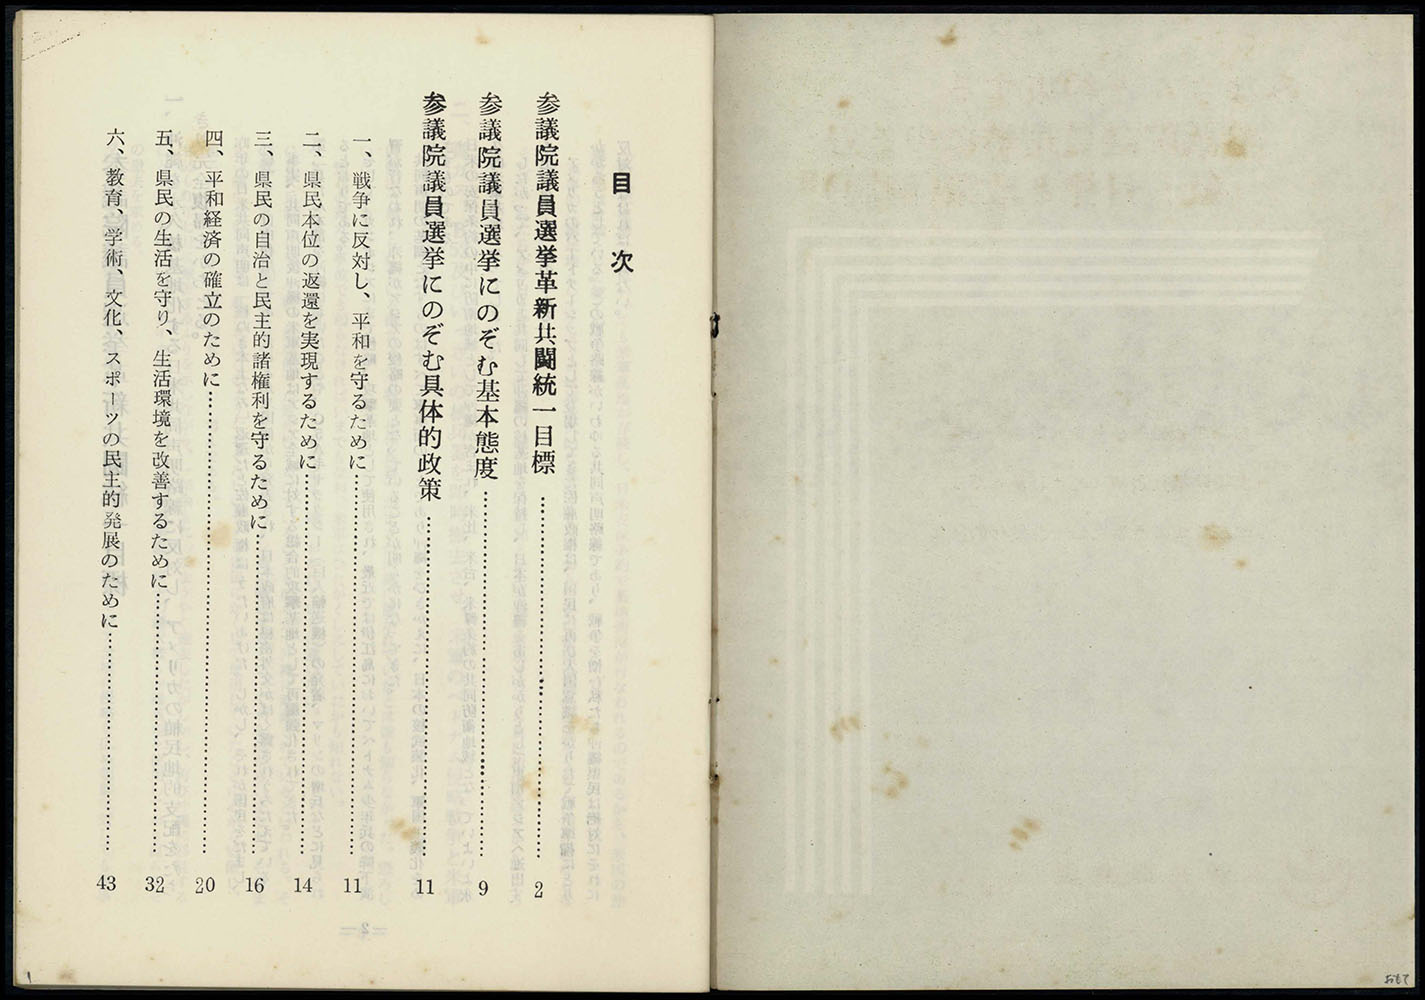 目次
参議院議員選挙革新共闘統一目標……2
参議院議員選挙にのぞむ基本態度……9
参議院議員選挙にのぞむ具体的政策……11
一、戦争に反対し、平和を守るために……11
二、県民本位の返還を実現するために……14
三、県民の自治と民主的諸権利を守るために……16
四、平和経済の確立のために……20
五、県民の生活を守り、生活環境を改善するために……32
六、教育、学術、文化、スポーツの民主的発展のために……43
1
おもて